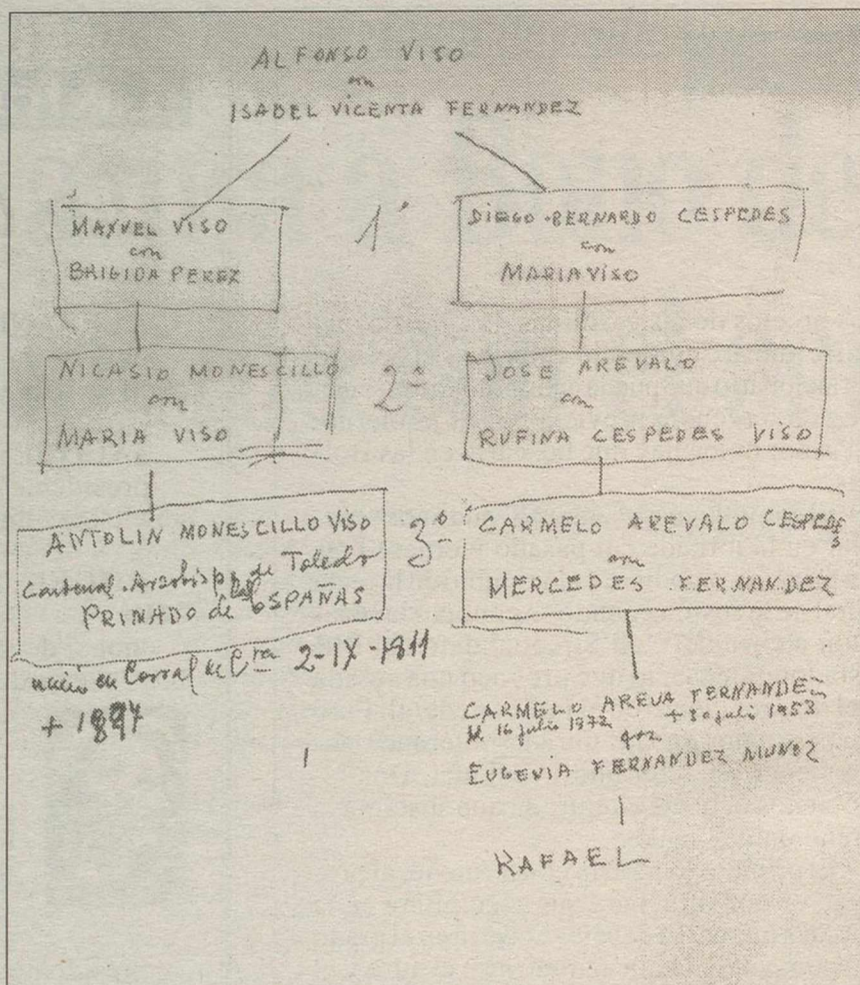 ALFONSO VISO
con
ISABEL VICENTA FERNANDEZ
MANUEL VISO
con
BRIGIDA PEREZ
1º
DIEGO-BERNARDO CESPEDES
con
MARIA VISO
NICASIO MONESCILLO
con
MARIA VISO
2º
JOSE AREVALO
con
RUFINA CESPEDES VISO
ANTOLIN MONESCILLO VISO
Cardenal-Arzobispo de Toledo
PRIMADO de ESPAÑAS
3º
CARMELO AREVALO CESPEDES
con
MERCEDES FERNANDEZ
nació en Corral de Cva 2-IX-1811
+ 1897
CARMELO AREVA FERNANDEZ
16 julio 1872 + 30 julio 1953
con
EUGENIA FERNANDEZ MUÑOZ
RAFAEL